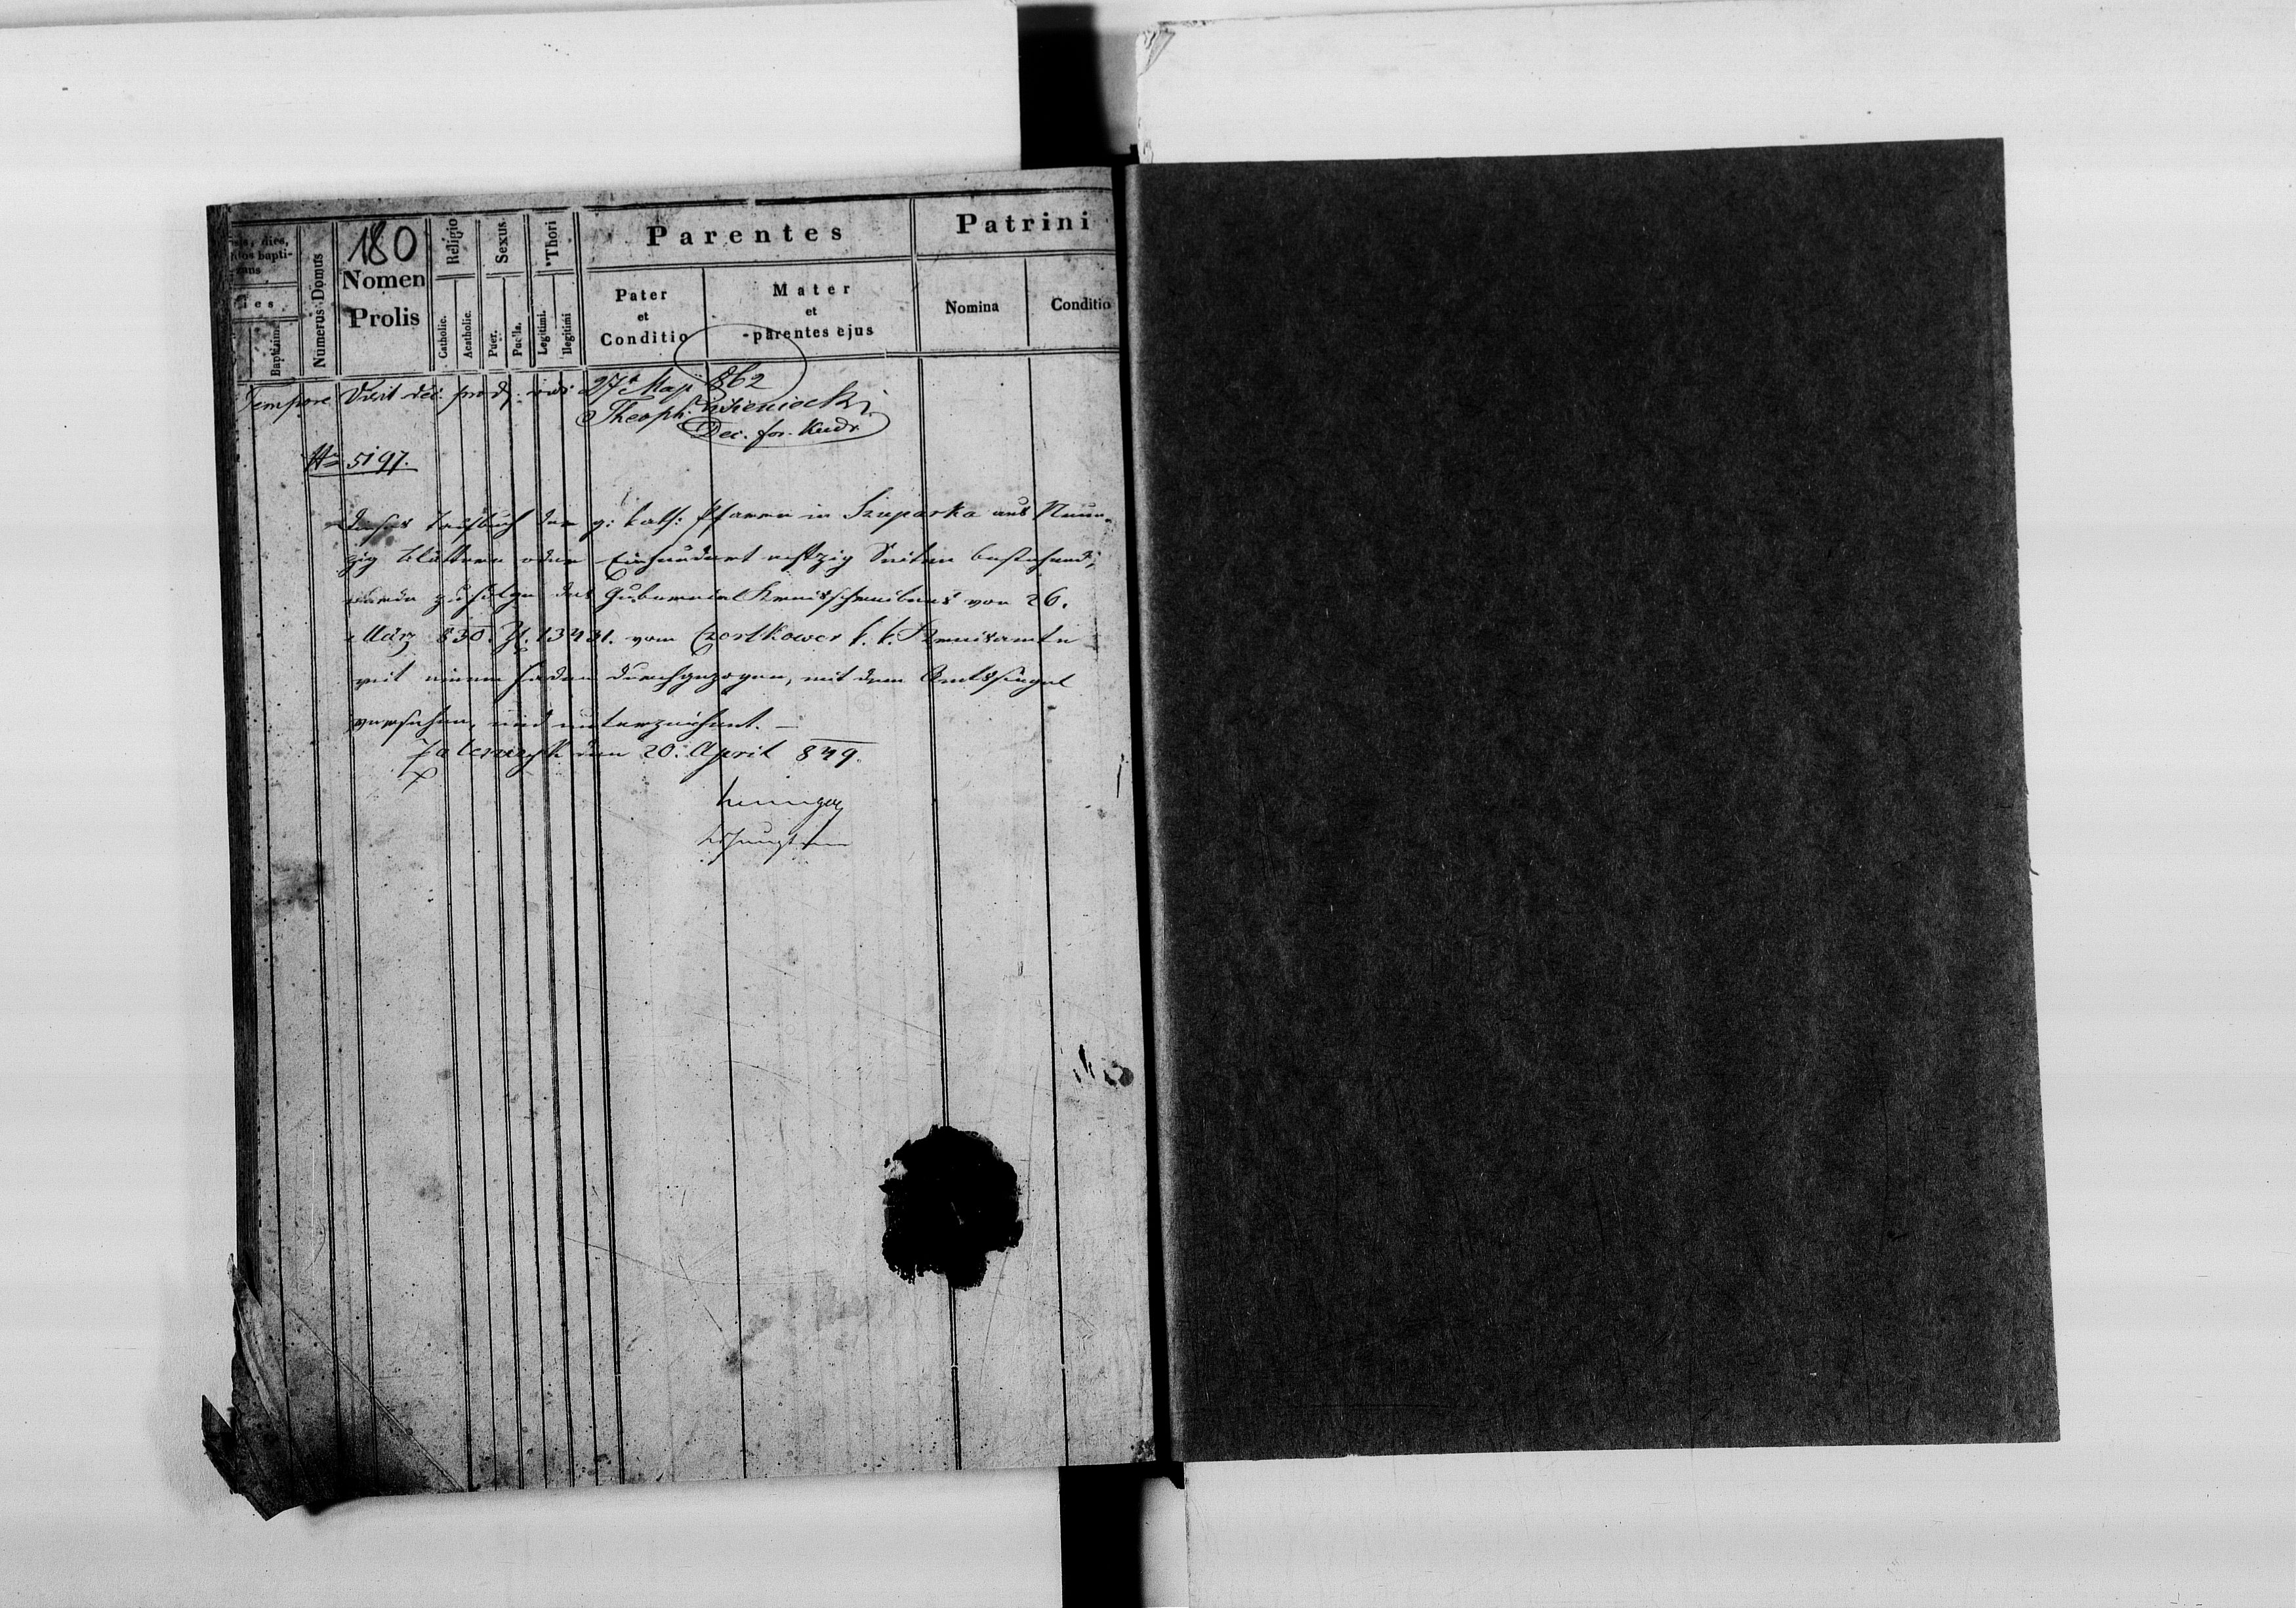 180
Numerus Domus
Nomen
Prolis
Religio
Catholic.
Acatholic.
Sexus
Puer.
Puella.
Thori
Legitimi.
Illegitimi
Parentes
Pater
et
Conditio
Mater
et
parentes ejus
Patrini
Nomina
Conditio
Tempore Visit dec. vidi 27 Maji 862
Theoph.
Dec. for. Kudr
No 5197.
Dieses Taufbuch der g: kath: Pfarre in Szuparka aus Neun-
zig Blättern oder Einhundert achtzig Seiten bestehend,
wurde zufolge des Gubernial Kreisschreibens von 26.
März 830. Zl. 13431. vom Czortkower k. k. Kreisamte
mit einem Faden durchgezogen, mit dem Amtssiegel
versehen, und unterzeichnet. —
Zaleszczyk den 20. April 849.